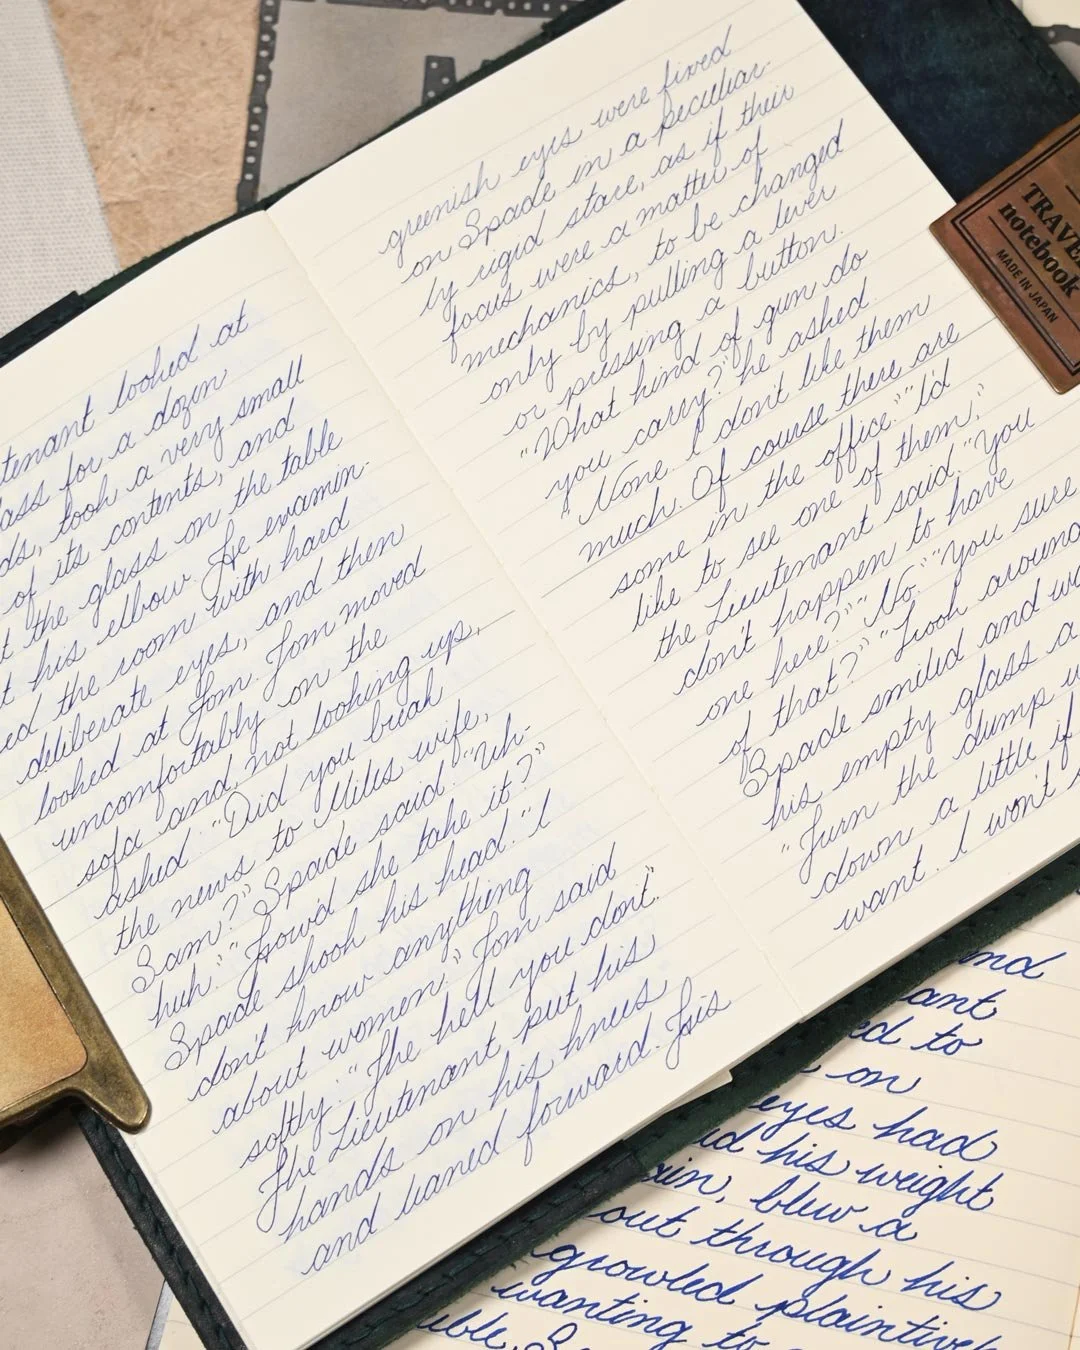 tenant looked at
ass for a dozen
ds, took a very small
of its contents, and
t the glass on the table
t his elbow. He examin-
ed the room with hard
deliberate eyes, and then
looked at Tom. Tom moved
uncomfortably on the
sofa and, not looking up,
asked. "Did you break
the news to Miles wife,
Sam?" Spade said. "Uh-
huh." "How'd she take it?"
Spade shook his head. "I
don't know anything
about women." Tom said
softly: "The hell you don't."
The Lieutenant put his
hands on his knees
and leaned forward. His
greenish eyes were fixed
on Spade in a peculiar-
ly rigid stare, as if their
focus were a matter of
mechanics, to be changed
only by pulling a lever
or pressing a button.
"What kind of gun do
you carry?" he asked.
"None. I don't like them
much. Of course there are
some in the office." "I'd
like to see one of them,"
the Lieutenant said. "You
don't happen to have
one here?" "No." "You sure
of that?" "Look around
Spade smiled and w
his empty glass a
"Turn the dump u
down a little if
want. I won't s
TRAVE
notebook
MADE IN JAPAN
nd
ant
ed to
on
eyes had
id his weight
ain, blew a
out through his
growled plaintivel
wanting to
ible. S